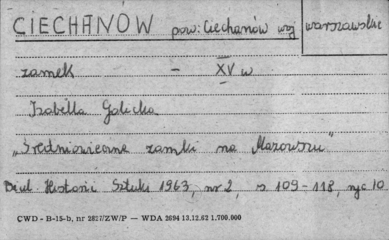 CIECHANÓW pow: Ciechanów woj warszawskie
zamek - XV w
Izabella Galicka
„Średniowieczne zamki na Mazowszu"
Biul. Historii Sztuki 1963, nr 2, s 109-118, ryc 10
CWD - B-15-b, nr 2817/ZW/P — WDA 2094 13.12.62 1.700.000